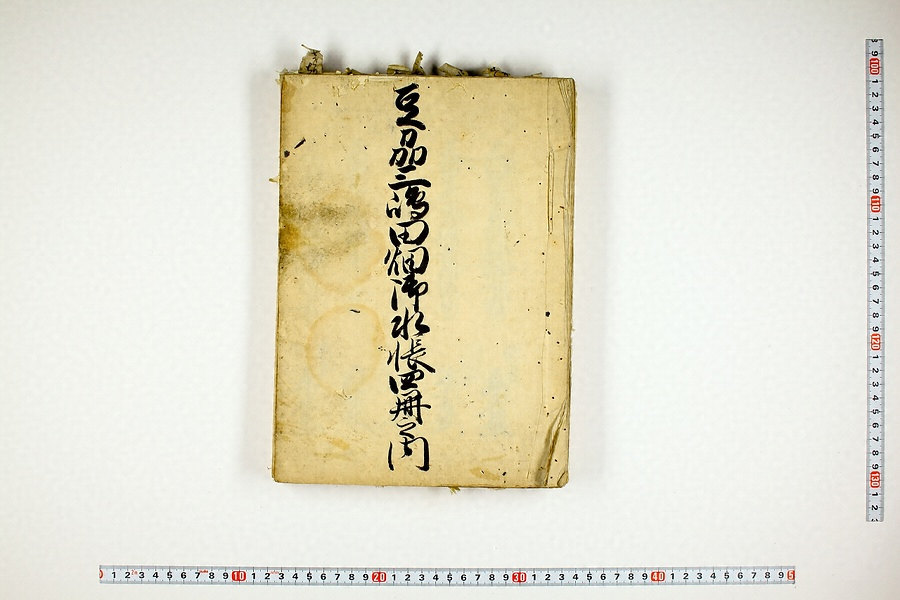 豆州三嶋田畑御水帳四冊之内
1 2 3 4 5 6 7 8 9 10 1 2 3 4 5 6 7 8 9 20 1 2 3 4 5 6 7 8 9 30 1 2 3 4 5 6 7 8 9 40 1 2 3 4 5 6 7 8 9 5
9 100 1 2 3 4 5 6 7 8 9 110 1 2 3 4 5 6 7 8 9 120 1 2 3 4 5 6 7 8 9 130 1 2